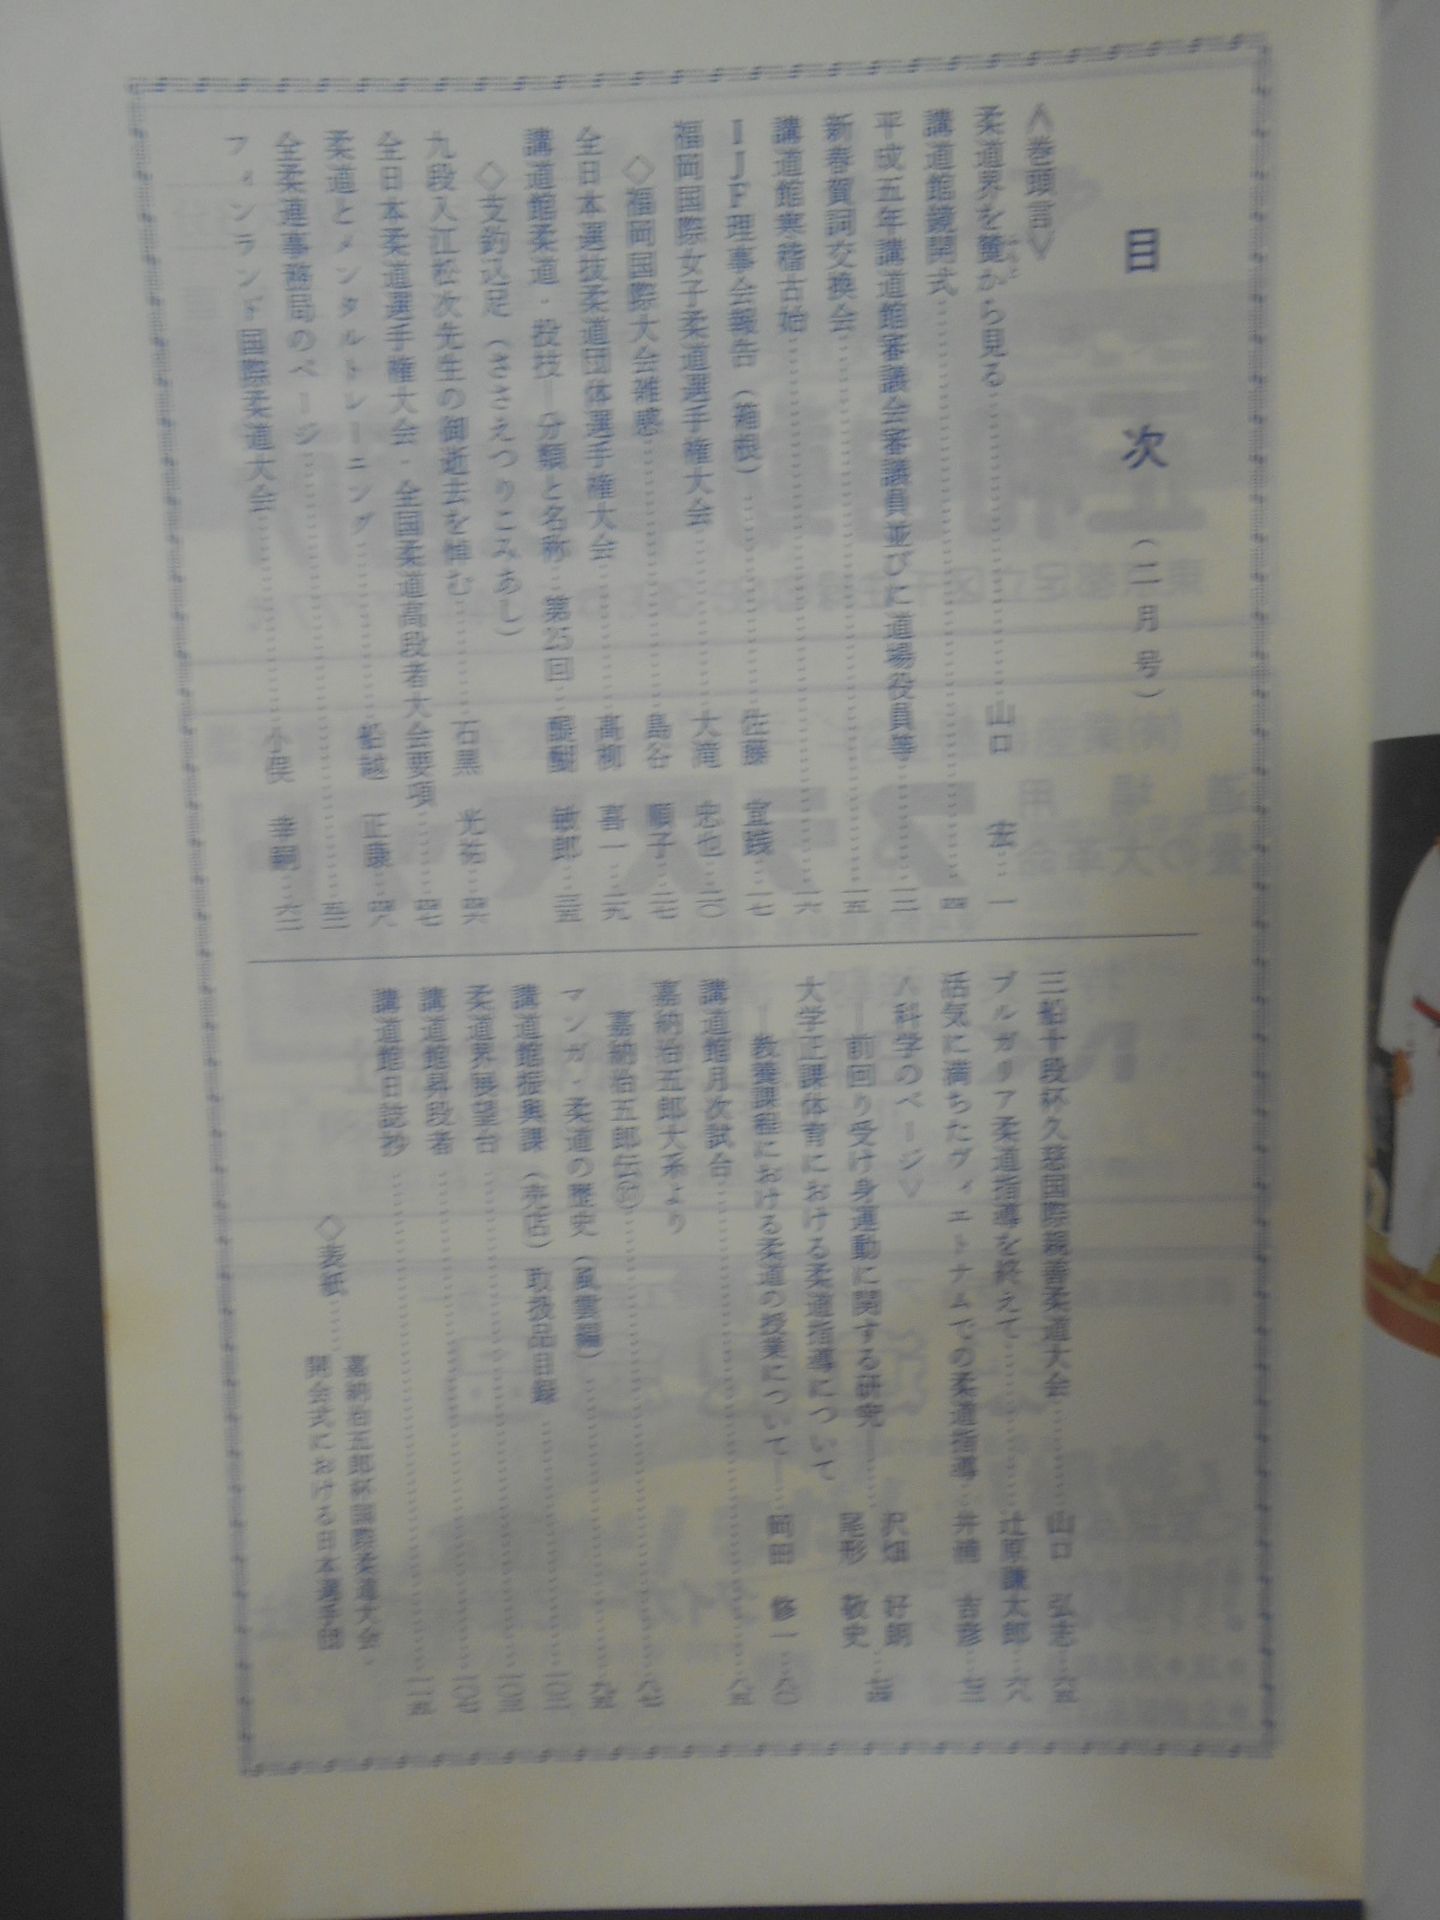 目次(二月号)
<巻頭言>
柔道界を簀から見る……山口 宏…一
講道館鏡開式……四
平成五年講道館審議会審議員並びに道場役員等……一二
新春賀詞交換会……一五
講道館寒稽古始……一六
IJF理事会報告(箱根)……佐藤 宣践…一七
福岡国際女子柔道選手権大会……大滝 忠也…二〇
◇福岡国際大会雑感……島谷 順子…二七
全日本選抜柔道団体選手権大会……高柳 喜一…二九
講道館柔道・投技―分類と名称…第25回…醍醐 敏郎…三五
◇支釣込足(ささえつりこみあし)
九段入江松次先生の御逝去を悼む……石黒 光祐…四六
全日本柔道選手権大会・全国柔道高段者大会要項……四七
柔道とメンタルトレーニング……船越 正康…四八
全柔連事務局のページ……五二
フィンランド国際柔道大会……小俣 幸嗣…六二
三船十段杯久慈国際親善柔道大会……山口 弘志…六五
ブルガリア柔道指導を終えて……辻原謙太郎…六八
活気に満ちたヴィエトナムでの柔道指導…井浦 吉彦…七二
<科学のページ>
―前回り受け身運動に関する研究―……沢畑 好朗 尾形 敬史…七四
大学正課体育における柔道指導について
―教養課程における柔道の授業について―…岡田 修一…八〇
講道館月次試合……八五
嘉納治五郎大系より
嘉納治五郎伝……八七
マンガ・柔道の歴史(風雲編)……九五
講道館振興課(売店)取扱品目録……一〇二
柔道界展望台……一〇三
講道館昇段者……一〇七
講道館日誌抄……一一五
◇表紙……嘉納治五郎杯国際柔道大会
開会式における日本選手団